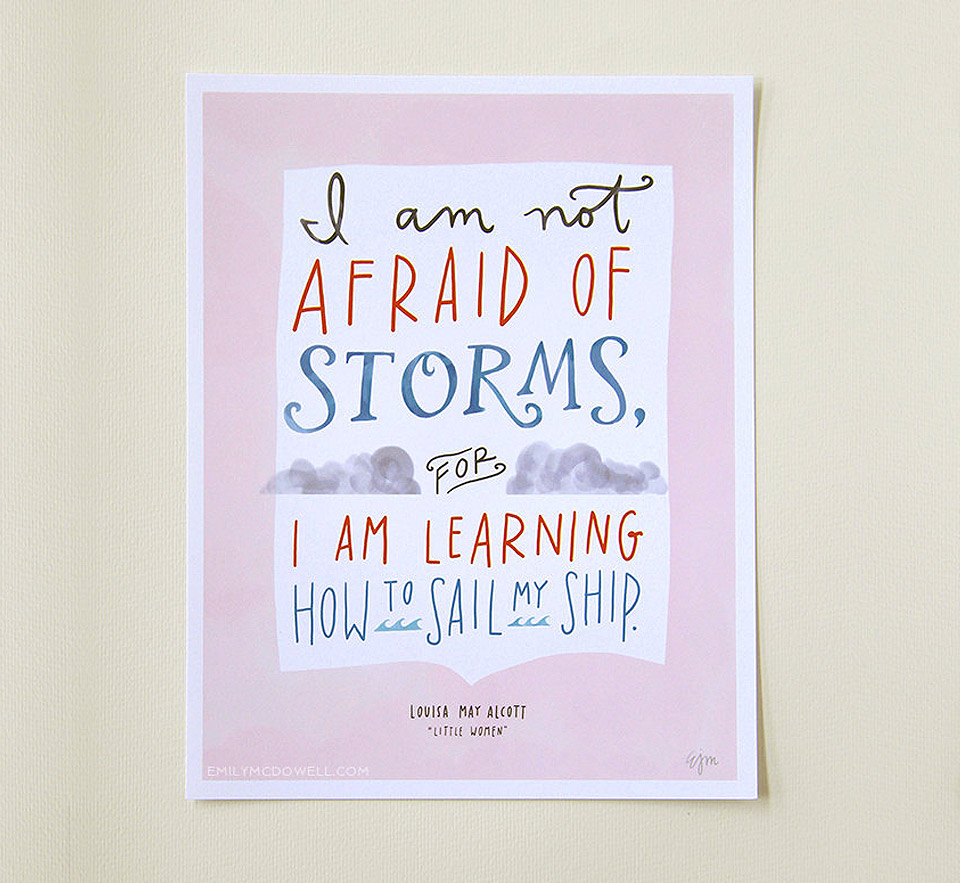 I am not
AFRAID OF
STORMS,
FOR
I AM LEARNING
HOW TO SAIL MY SHIP.
LOUISA MAY ALCOTT
"LITTLE WOMEN"
EMILYMCDOWELL.COM
ejm